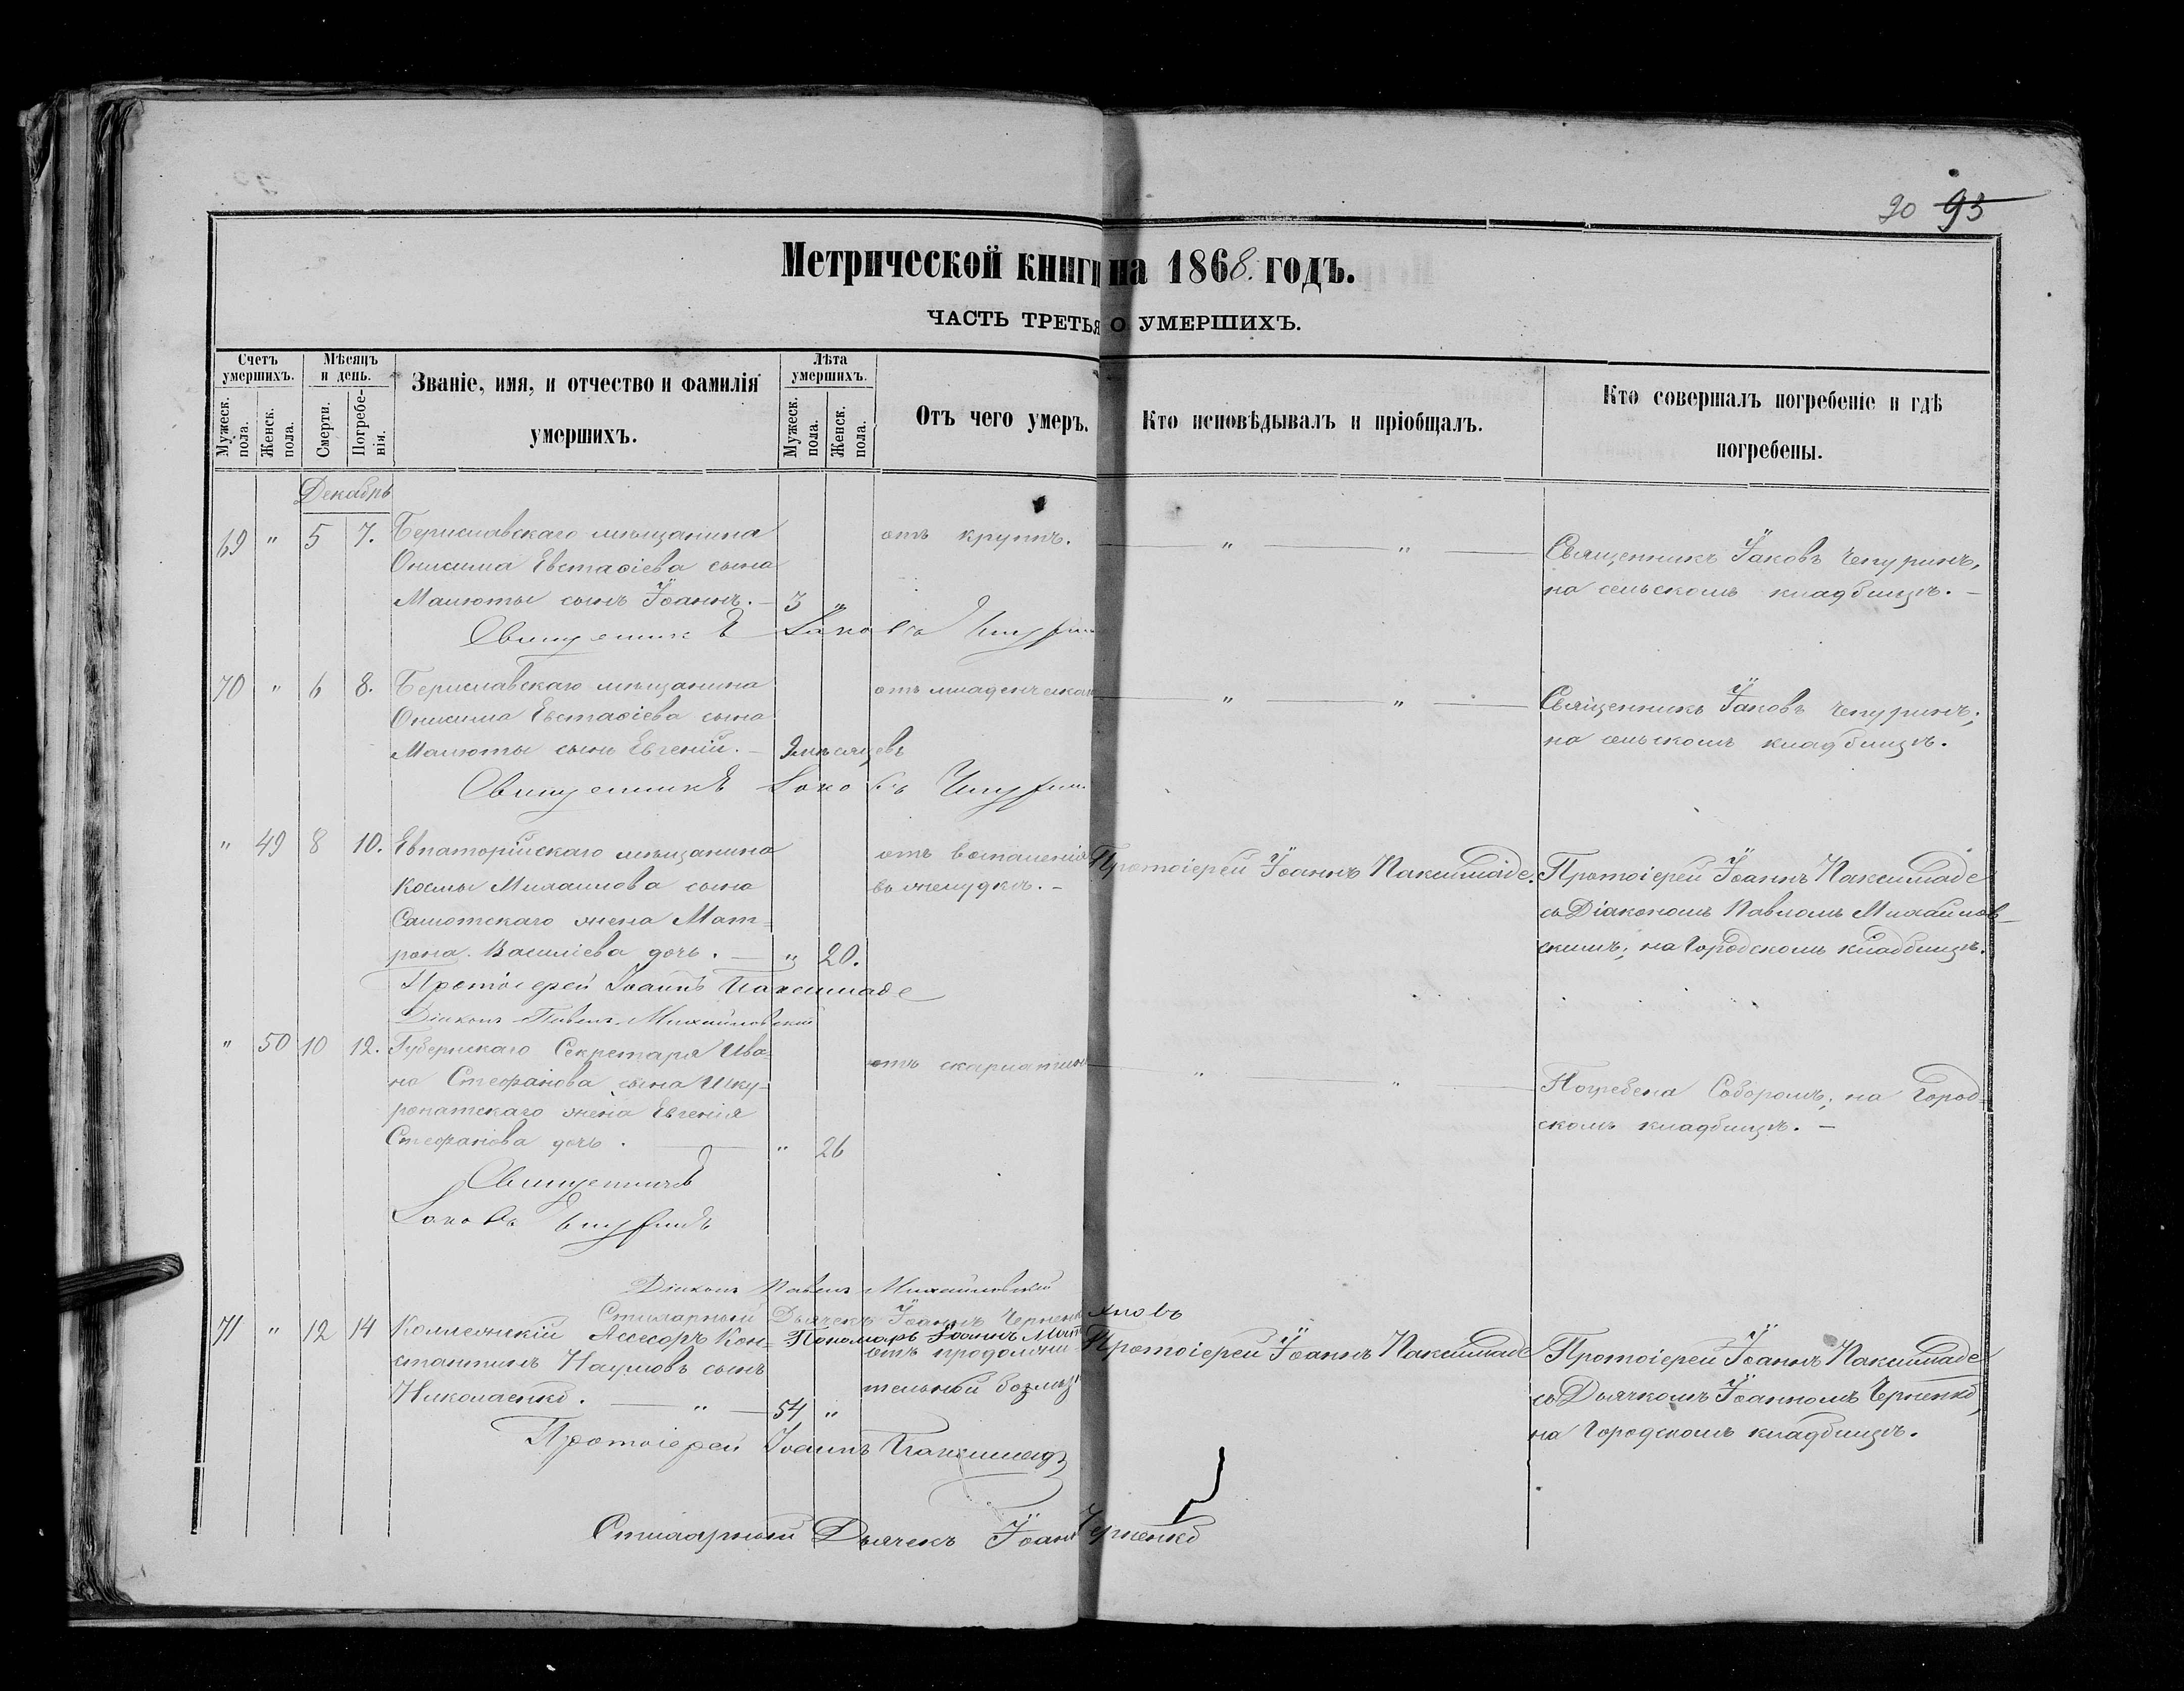 20 93
Метрической книги на 1868. годъ.
ЧАСТЬ ТРЕТЬЯ О УМЕРШИХЪ.
Счетъ умершихъ.
Мужеск. пола.
Женск. пола.
Мѣсяцъ и день.
Смерти.
Погребенія.
Званіе, имя, и отчество и фамилія умершихъ.
Лѣта умершихъ.
Мужеск. пола.
Женск. пола.
Отъ чего умеръ.
Кто исповѣдывалъ и пріобщалъ.
Кто совершалъ погребеніе и гдѣ погребены.
Декабрь
69 " 5 7. Бериславскаго мѣщанина отъ крупъ. " " Священникъ Іаковъ Чепуринъ,
Онисима Евстафіева сына на сельскомъ кладбищѣ.
Малюты сынъ Іоаннъ. 3 "
Священникъ Іаковъ Чепурин
70 " 6 8. Бериславскаго мѣщанина отъ младенческой " " Священникъ Іаковъ Чепуринъ;
Онисима Евстафіева сына на сельскомъ кладбищѣ.
Малюты сынъ Евгеній. мѣсяцевъ
Священникъ Іаковъ Чепурин
" 49 8 10. Евпаторійскаго мѣщанина отъ воспаленія Протоіерей Іоаннъ Паксимаде. Протоіерей Іоаннъ Паксимаде
Космы Михаилова сына въ желудкѣ. съ Діакономъ Павломъ Михайлов-
жена Мат= скимъ; на Городскомъ кладбищѣ.
рона Василіева дочь. " 20.
Протоіерей Іоаннъ Паксимаде
Діаконъ Павелъ Михайловскій
" 50 10 12. Губернскаго Секретаря Ива= отъ скарлатины " " Погребена Соборомъ; на Город=
на Стефанова сына Шку- скомъ кладбищѣ.
ропатскаго жена Евгенія
Стефанова дочь. " 26
Священникъ
Іаковъ Чепуринъ
Діаконъ Павелъ Михайловскій
Стихарный Дьячекъ Іоаннъ Черненко
Пономарь Іоаннъ
71 " 12 14 Коллежскій Асесоръ Кон= отъ продолжи= Протоіерей Іоаннъ Паксимаде Протоіерей Іоаннъ Паксимаде
стантинъ Наумовъ сынъ тельной съ Дьячкомъ Іоанномъ Черненко,
Николаенко. " 54 " на Городскомъ кладбищѣ.
Протоіерей Іоаннъ Паксимаде
Стихарный Дьячекъ Іоанъ Черненко